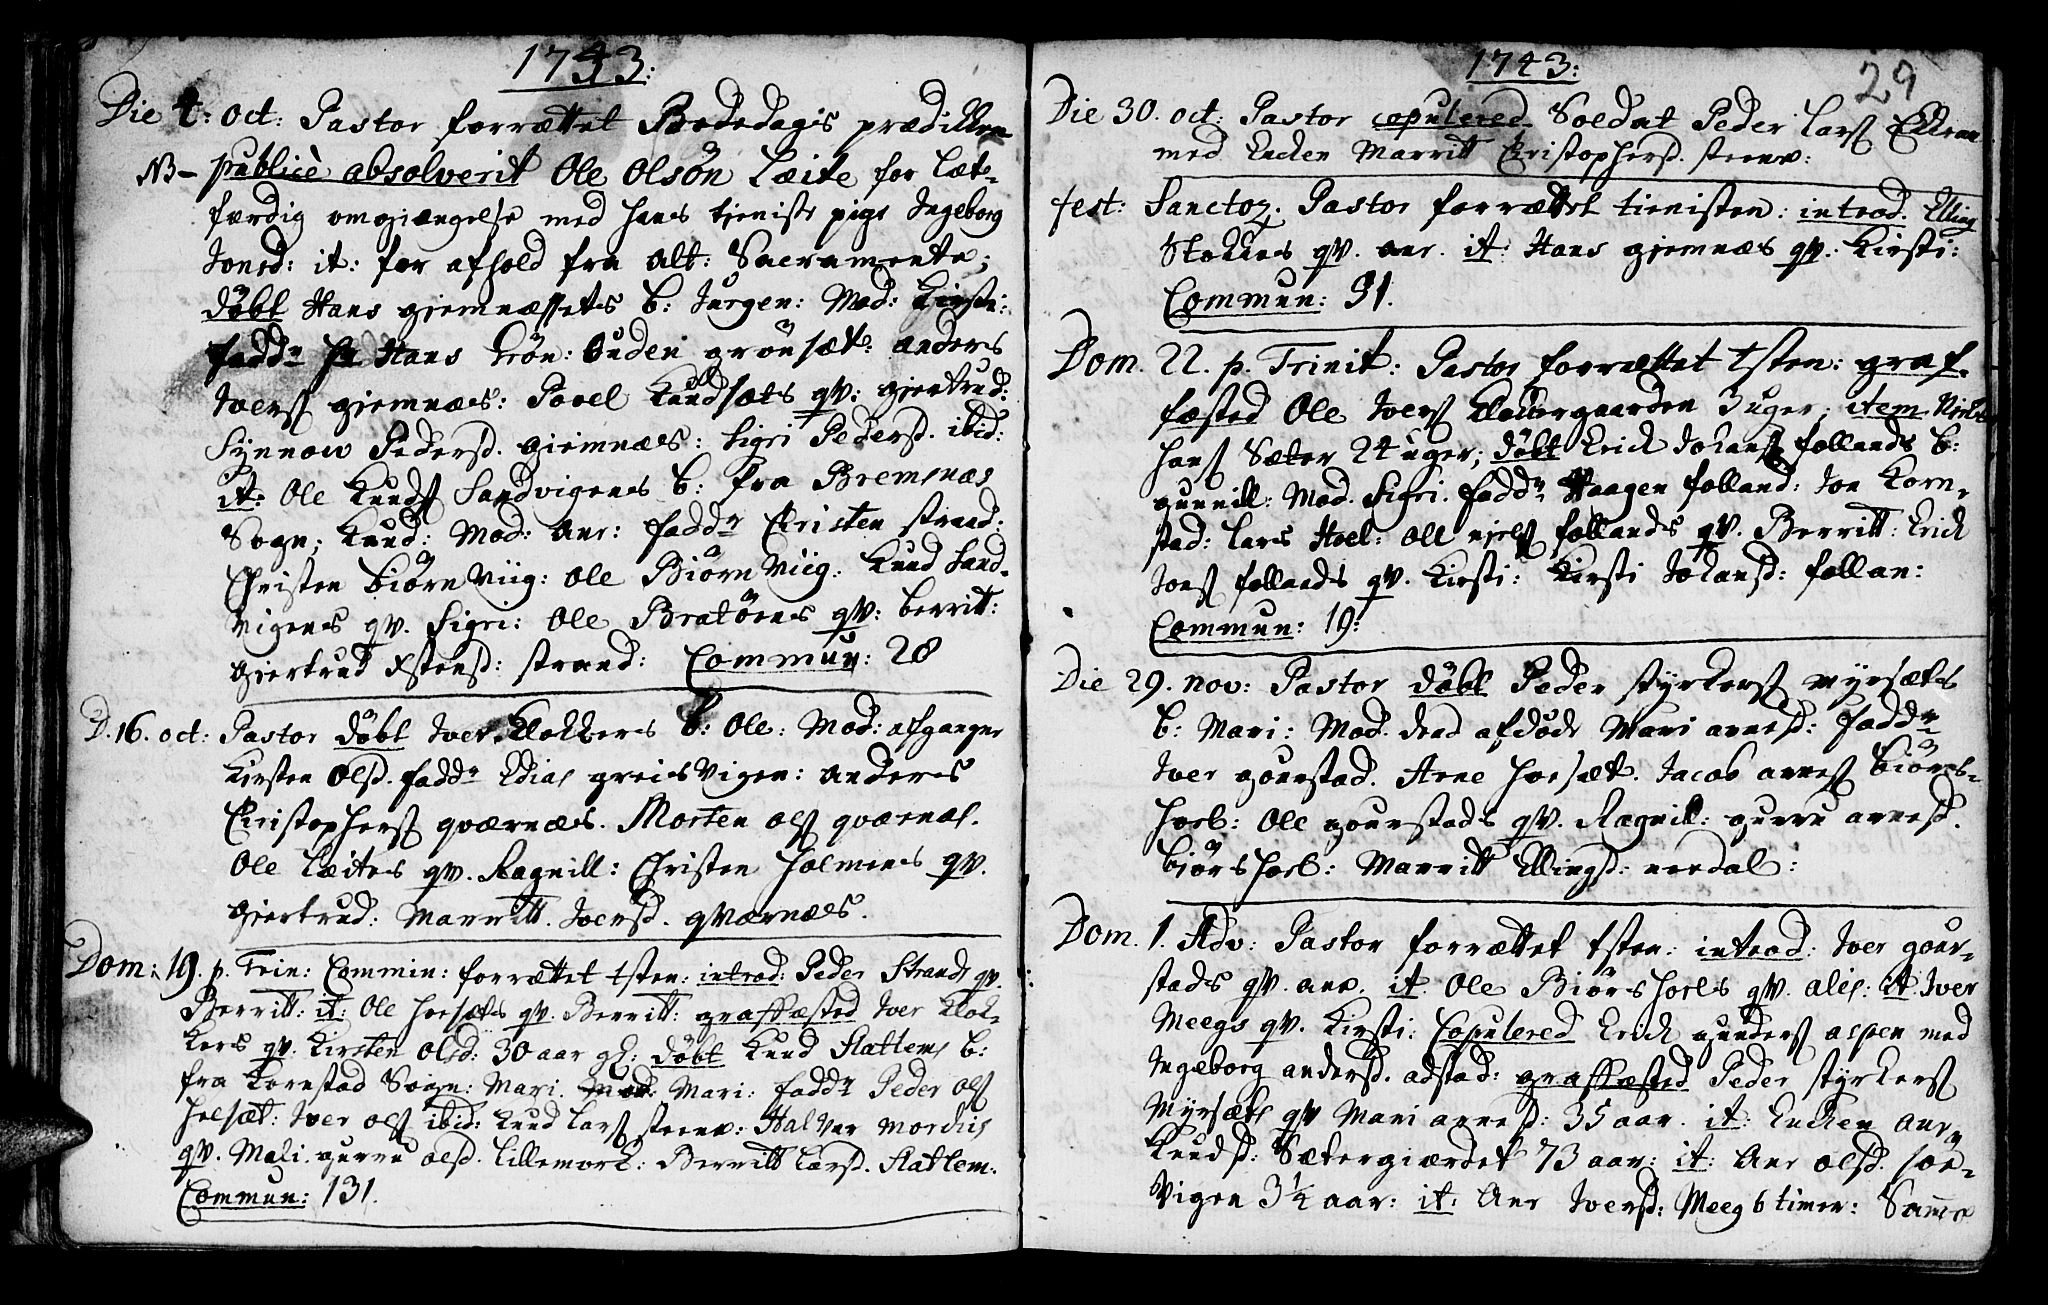 1743:
Die 4: oct: Pastor forrættet Bededagis prædikken
NB– publicè absolverit Ole Olsøn Læite for Læt-
færdig omgiængelse med hans tieniste pige Ingeborg
Jonsd: it: for afhold fra Alt: Sacramente;
døbt Hans giemnæssets b: Jurgen: Mod: Kirsti:
fadd^r Hr Hans Grøn: Ouden grønsæt: anders
Ivers giemnæs: Povel Knudsæts qv: giertrud:
Synnov Peders d. giemnæs: Sigri Peders d. ibid:
it: Ole Knuds Sandvigens b: fra Bremsnæs
Sogn; Knud: Mod: Ane: fadd^r Christen strand:
Christen Biørnviig: Ole Biørnviig: Knud Sand-
vigens qv. Sigri: Ole Bratøens qv: berritt:
giertrud Estens d: strand: Commun: 28
D. 16. oct: Pastor døbt Iver Klokkers b: Ole: Mod: afgangne
Kirsten Ols d. fadd^r Elias greisvigen: anders
Christophers qværnæs. Morten ols qværnæs.
Ole Læites qv. Ragnill: Christen Holmens qv.
giertrud: Marritt Ivers d. qværnæs.
Dom: 19. p. Trin: Commin: forrættet tsten: introd: Peder Strands qv.
Berritt: it: Ole hoesæts qv. Berritt: graffæsted Iver Klok-
kers qv. Kirsten Olsd: 30 aar gl: døbt Knud Flattems b:
fra Kornstad Sogn: Mari. Mod: Mari: fadd^r Peder Ols
hoesæt: Iver ols ibid: Knud Lars steene: Halvar mordius
qv. Mali. gurru ols d. Lillemork: Berritt Lars d. Flattem.
Commun: 131.
1743: 29
Die 30. oct: Pastor copulered Soldat Peder Lars
med Encken Marritt Christophers d. steene:
fest: Sanctor: Pastor forrættet tienisten: introd: Elling
Stokkes qv. ane. it: Hans giemnæs qv. Kirsti:
Commun: 91.
Dom. 22. p. Trinit: Pastor forrættet tsten: graf-
fæsted Ole Ivers Klokkergaarden 3 uger; item Niels
hans Sæter 24 uger; døbt Erick Johans follands b:
gunnill: Mod. Sigri. fadd^r Haagen folland: Jon Korn-
stad: Lars Hoel: Ole niels follands qv. Berritt: Erick
Jons follands qv. Kirsti: Kirsti Johansd: follan:
Commun: 19:
Die 29. nov: Pastor døbt Peder styrkers myrsæts
b: Mari: Mod. dend afdøde Mari arnes d: fadd^r
Iver gourstad. Arne hoesæt. Jacob arnes Biørs-
hoel: Ole gourstads qv. Ragnill: gurru arnes d.
Biørshoel: Marritt Ellings d: nerdal:
Dom. 1. Adv: Pastor forrættet tsten: introd: Iver gour-
stads qv. ane. it. Ole Biørshoels qv. ales: it. Iver
Meegs qv. Kirsti: Copulered Erick gunders aspen med
Ingeborg anders d. adstad: graffæsted Peder styrkers
Myrsæts qv Mari arnes d: 35 aar. it: Encken Ane
Knuds d: Sætergiærdet 73 aar: it: Ane Ols d. soe-
vigen 3 1/4 aar: it: Ane Ivers d: Meeg 6 timer: Samme